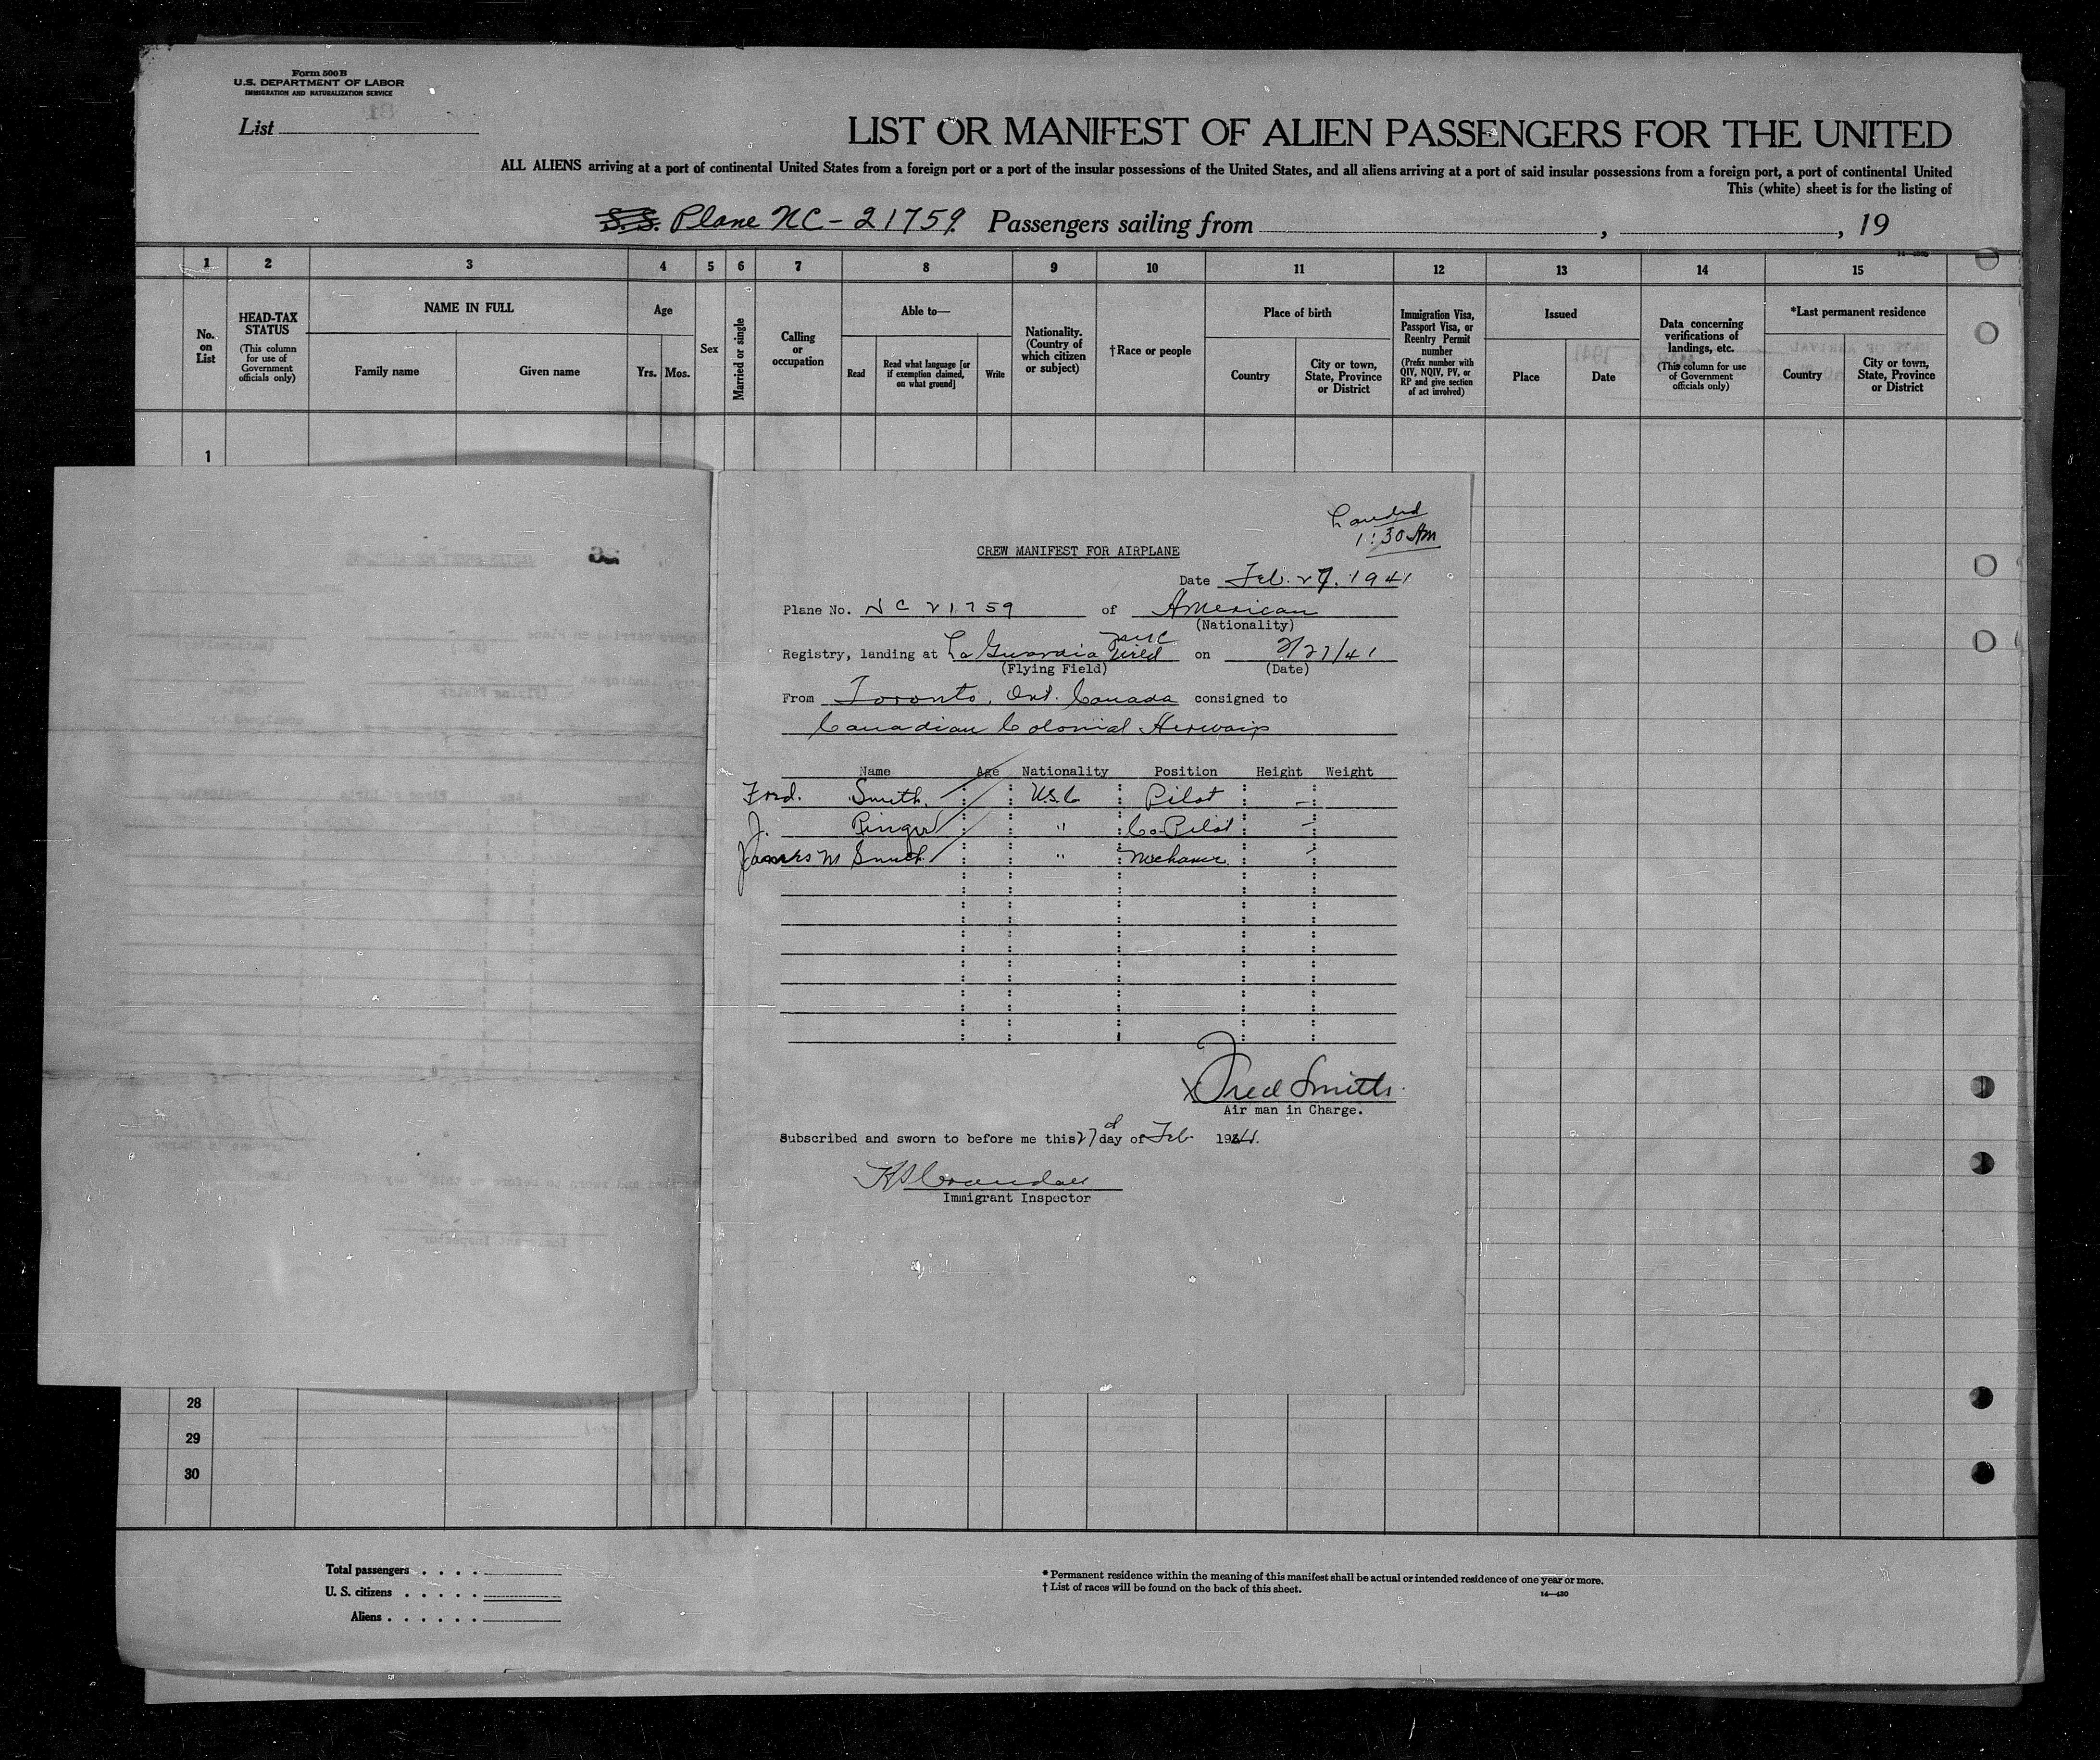 Form 500 B
U.S. DEPARTMENT OF LABOR
IMMIGRATION AND NATURALIZATION SERVICE
List
LIST OR MANIFEST OF ALIEN PASSENGERS FOR THE UNITED
ALL ALIENS arriving at a port of continental United States from a foreign port or a port of the insular possessions of the United States, and all aliens arriving at a port of said insular possessions from a foreign port, a port of continental United
This (white) sheet is for the listing of
S.S. Plane NC-21759. Passengers sailing from , , 19
1 2 3 4 5 6 7 8 9 10 11 12 13 14 15
No. on List
HEAD-TAX STATUS
(This column for use of Government officials only)
NAME IN FULL
Family name
Given name
Age
Yrs. Mos.
Sex
Married or single
Calling or occupation
Able to—
Read
Read what language [or if exemption claimed, on what ground]
Write
Nationality. (Country of which citizen or subject)
†Race or people
Place of birth
Country
City or town, State, Province or District
Immigration Visa, Passport Visa, or Reentry Permit number
(Prefix number with QIV, NQIV, PV, or RP and give section of act involved)
Issued
Place
Date
Data concerning verifications of landings, etc.
(This column for use of Government officials only)
*Last permanent residence
Country
City or town, State, Province or District
1
Landed
1:30 AM
CREW MANIFEST FOR AIRPLANE
Date Feb. 27. 1941
Plane No. NC 21759 of American
(Nationality)
Registry, landing at La Guardia on 2/27/41
(Flying Field) (Date)
From Toronto, Ont. Canada consigned to
Canadian Colonial Airways
Name Age Nationality Position Height Weight
Fred. Smith. U.S.C Pilot –
J. " Co-Pilot –
James M Smith " Mechanic –
X Fred Smith
Air man in Charge.
Subscribed and sworn to before me this 27 day of Feb 1941.
Immigrant Inspector
28
29
30
Total passengers . . . .
U. S. citizens . . . . .
Aliens . . . . . .
* Permanent residence within the meaning of this manifest shall be actual or intended residence of one year or more.
† List of races will be found on the back of this sheet.
14—430